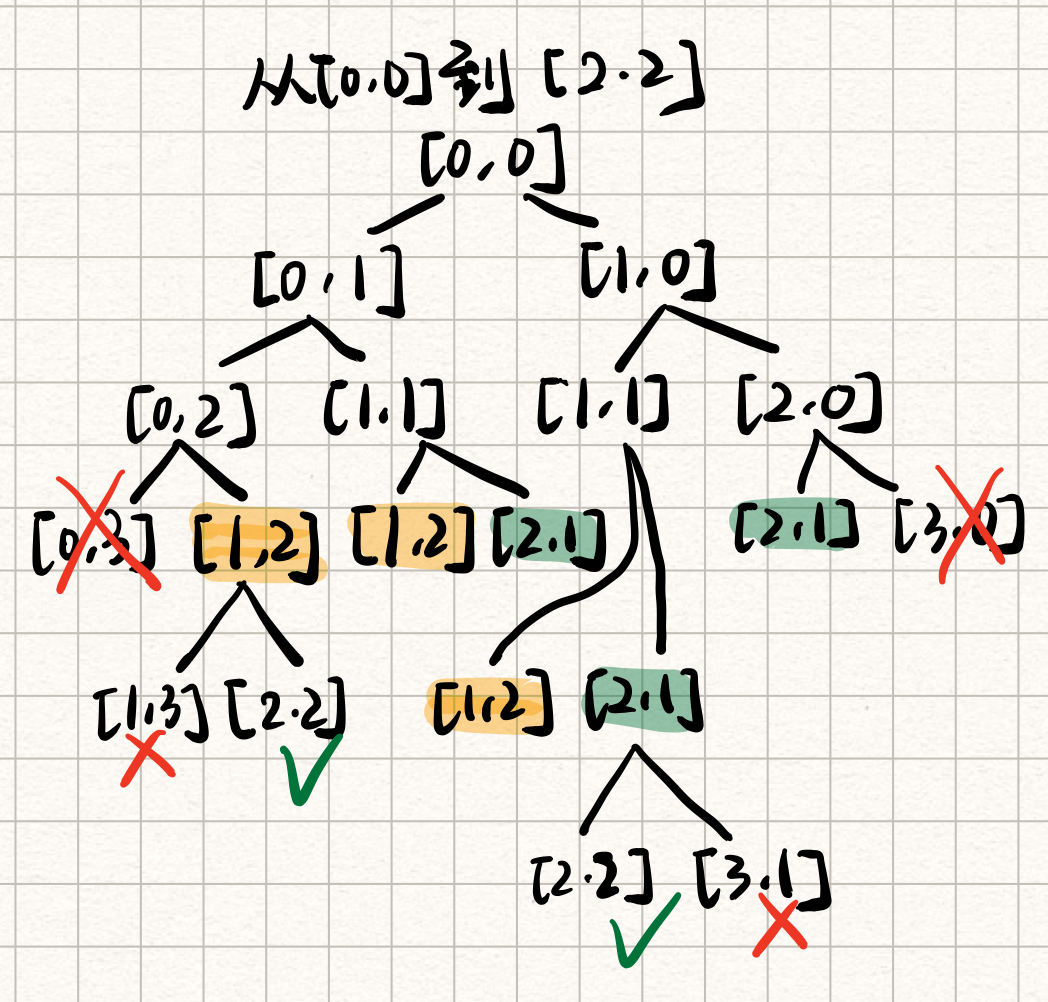 从[0,0]到[2.2]
[0,0]
[0,1] [1,0]
[0,2] [1.1] [1.1] [2.0]
[0,3] [1,2] [1.2] [2.1] [2,1] [3.0]
[1,3] [2.2] [1,2] [2.1]
[2.2] [3.1]